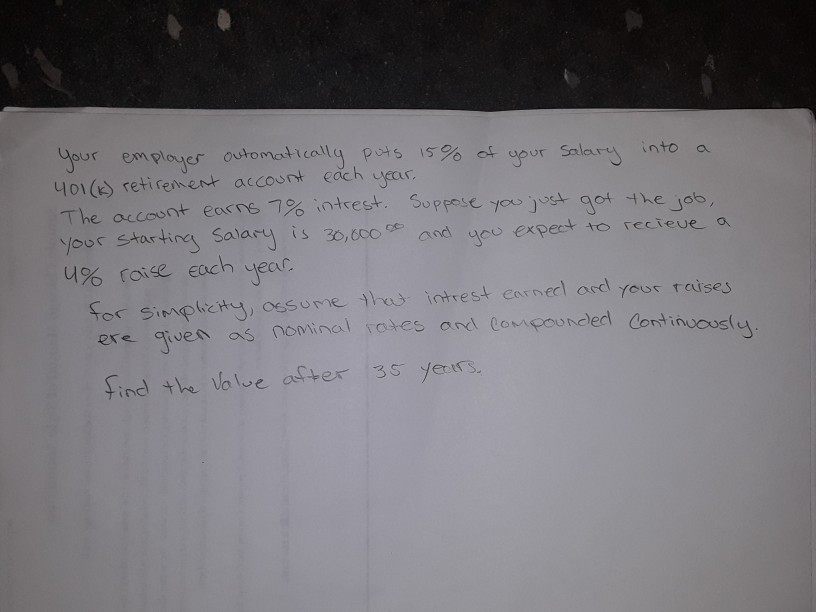 your employer automatically puts 15% of your salary into a
401(k) retirement account each year.
The account earns 7% intrest. Suppose you just got the job,
your starting salary is 30,000 00 and you expect to recieve a
4% raise each year.
for simplicity, assume that intrest earned and your raises
ere given as nominal rates and compounded continuously.
find the value after 35 years.